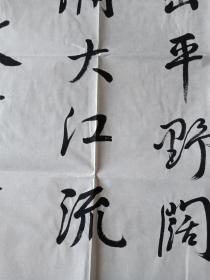 平野闊
大江流